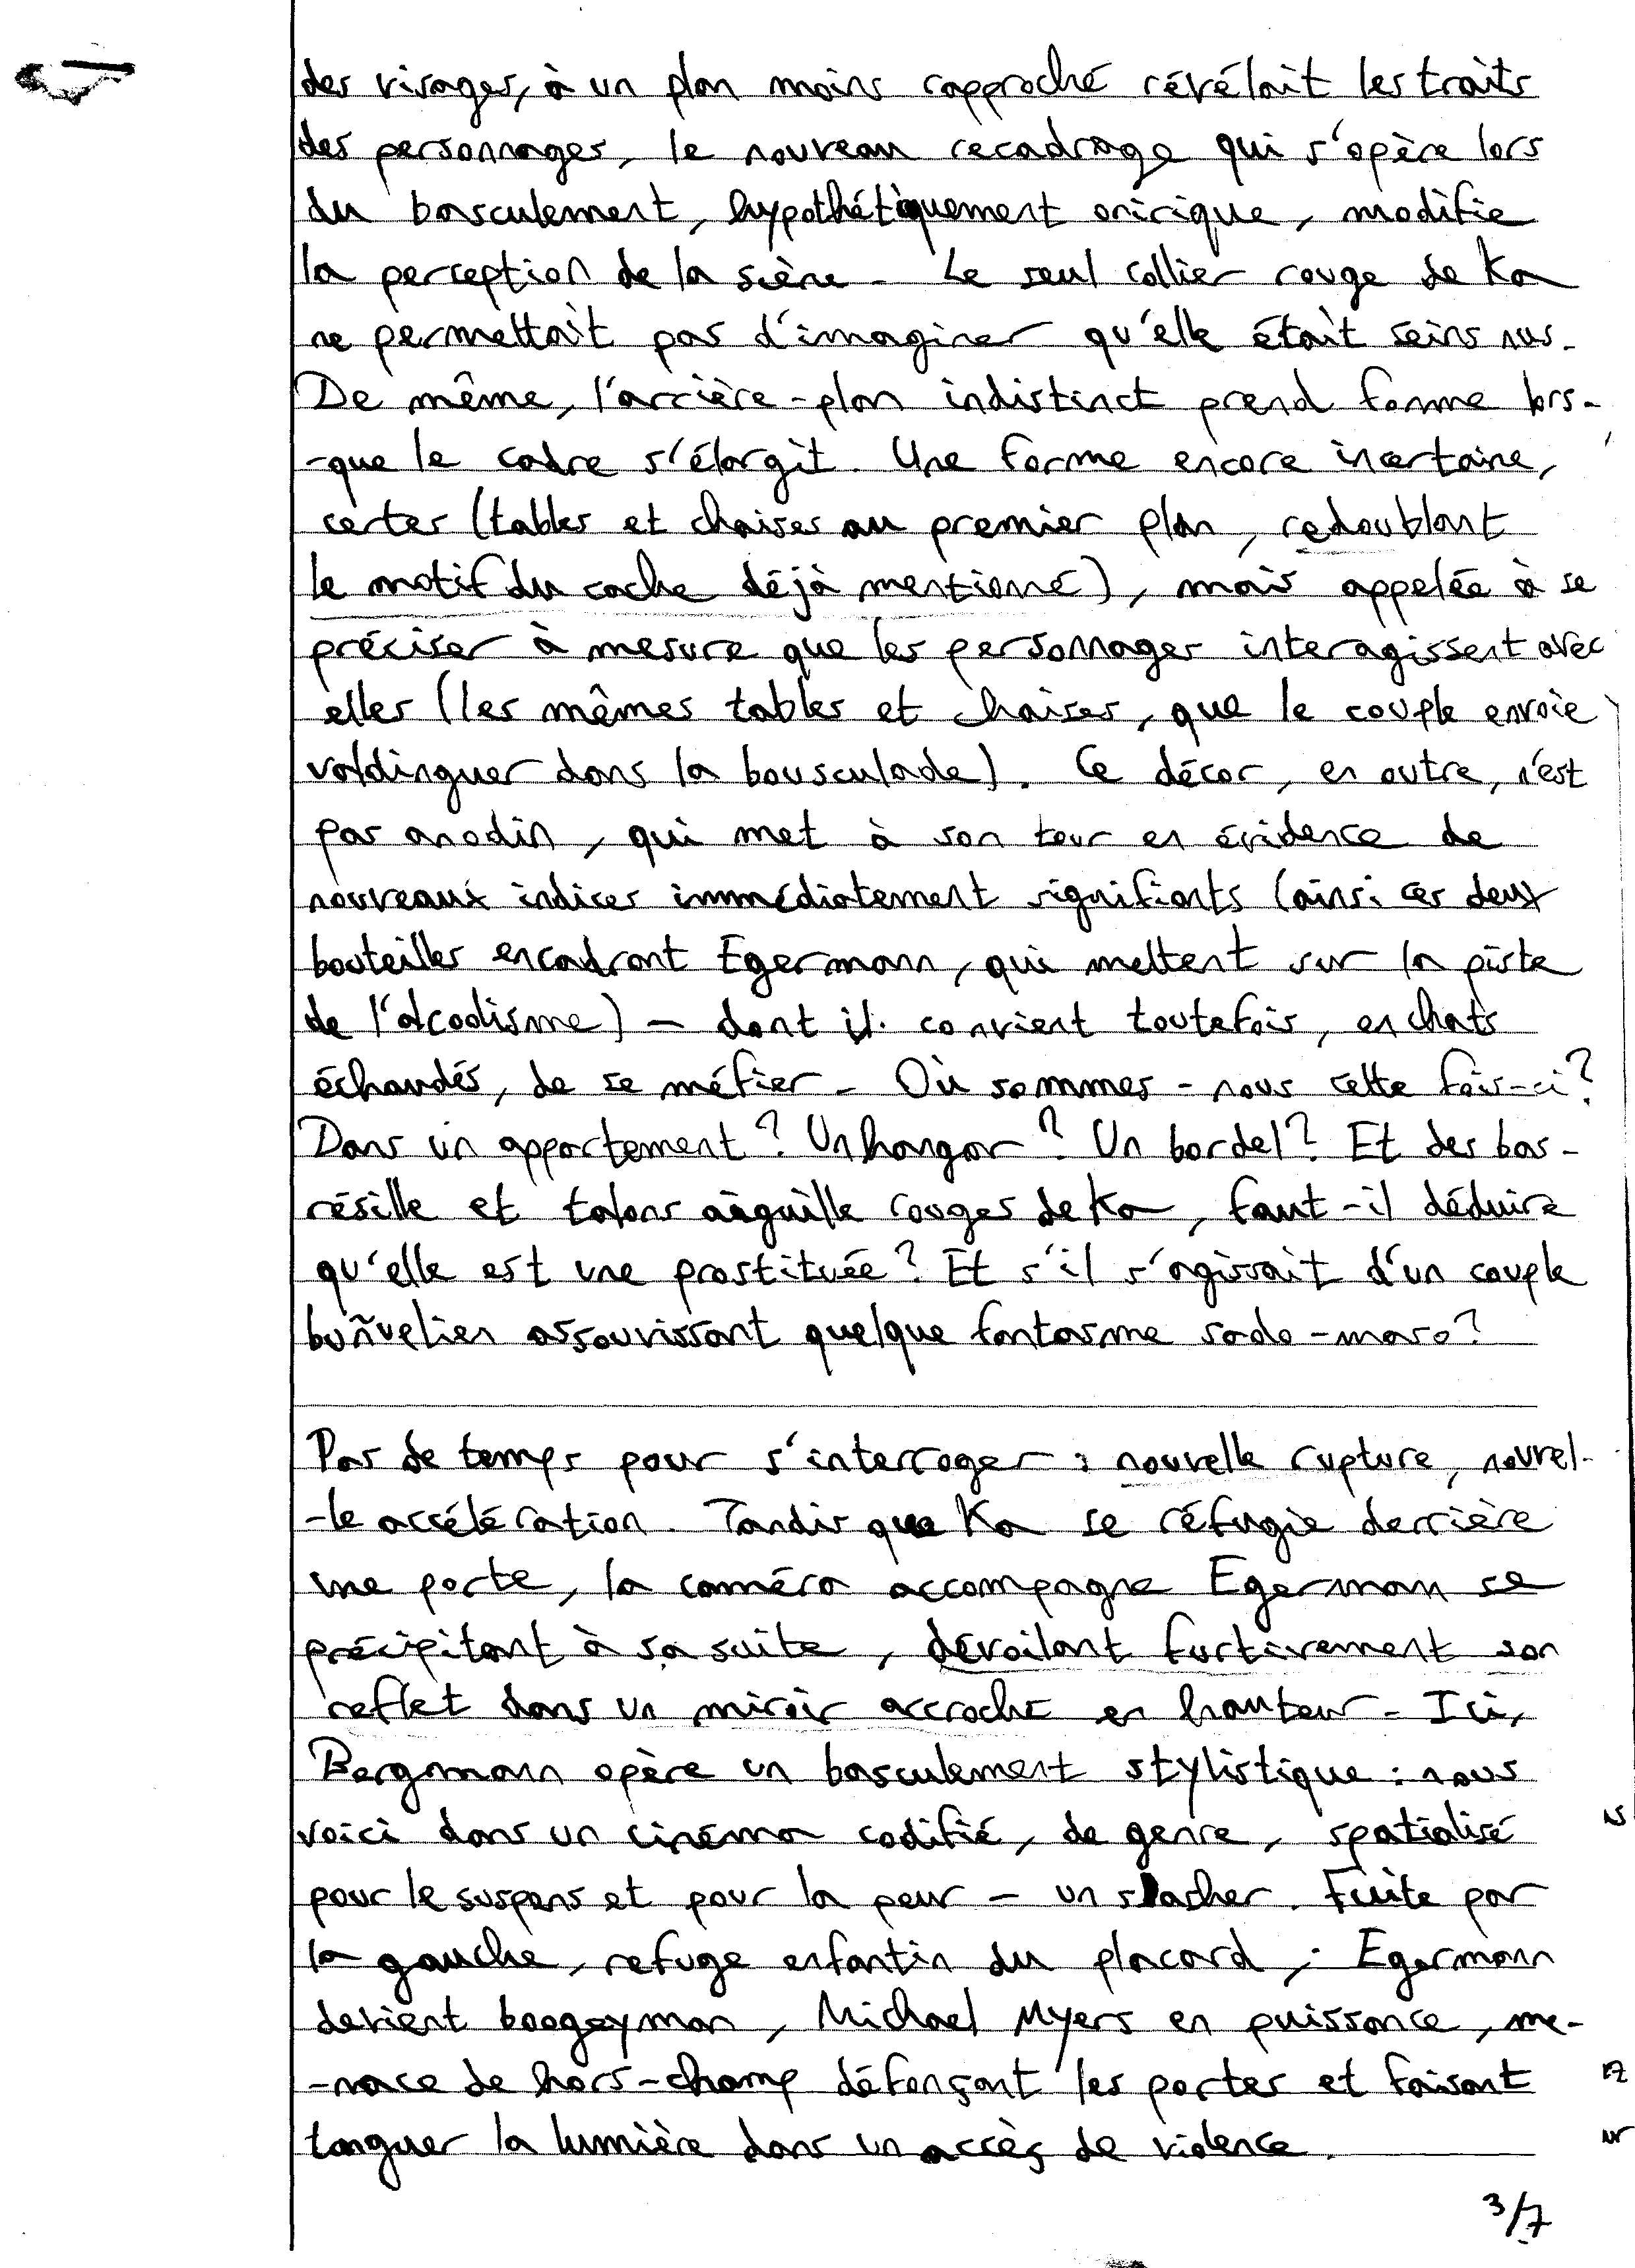 des visages, à un plan moins rapproché révélait les traits
des personnages, le nouveau recadrage qui s'opère lors
du basculement, hypothétiquement onirique, modifie
la perception de la scène. Le seul collier rouge de Ka
ne permettait pas d'imaginer qu'elle était seins nus.
De même, l'arrière-plan indistinct prend forme lors-
-que le cadre s'élargit. Une forme encore incertaine,
certes (tables et chaises au premier plan, redoublant
le motif du cache déjà mentionné), mais appelée à se
préciser à mesure que les personnages interagissent avec
elles (les mêmes tables et chaises, que le couple envoie
valdinguer dans la bousculade). Ce décor, en outre, n'est
pas anodin, qui met à son tour en évidence de
nouveaux indices immédiatement signifiants (ainsi ces deux
bouteilles encadrant Egermann, qui mettent sur la piste
de l'alcoolisme) – dont il convient toutefois, en chats
échaudés, de se méfier. Où sommes-nous cette fois-ci ?
Dans un appartement ? Un hangar ? Un bordel ? Et des bas-
résille et talons aiguille rouges de Ka, faut-il déduire
qu'elle est une prostituée ? Et s'il s'agissait d'un couple
buñuelien assouvissant quelque fantasme sado-maso ?
Pas de temps pour s'interroger : nouvelle rupture, nouvel-
-le accélération. Tandis que Ka se réfugie derrière
une porte, la caméra accompagne Egermann se
précipitant à sa suite, dévoilant furtivement son
reflet dans un miroir accroché en hauteur. Ici,
Bergmann opère un basculement stylistique : nous
voici dans un cinéma codifié, de genre, spatialisé
pour le suspens et pour la peur – un slasher. Fuite par
la gauche, refuge enfantin du placard ; Egermann
devient boogeyman, Michael Myers en puissance, me-
-nace de hors-champ défonçant les portes et faisant
tanguer la lumière dans un accès de violence.
3/7